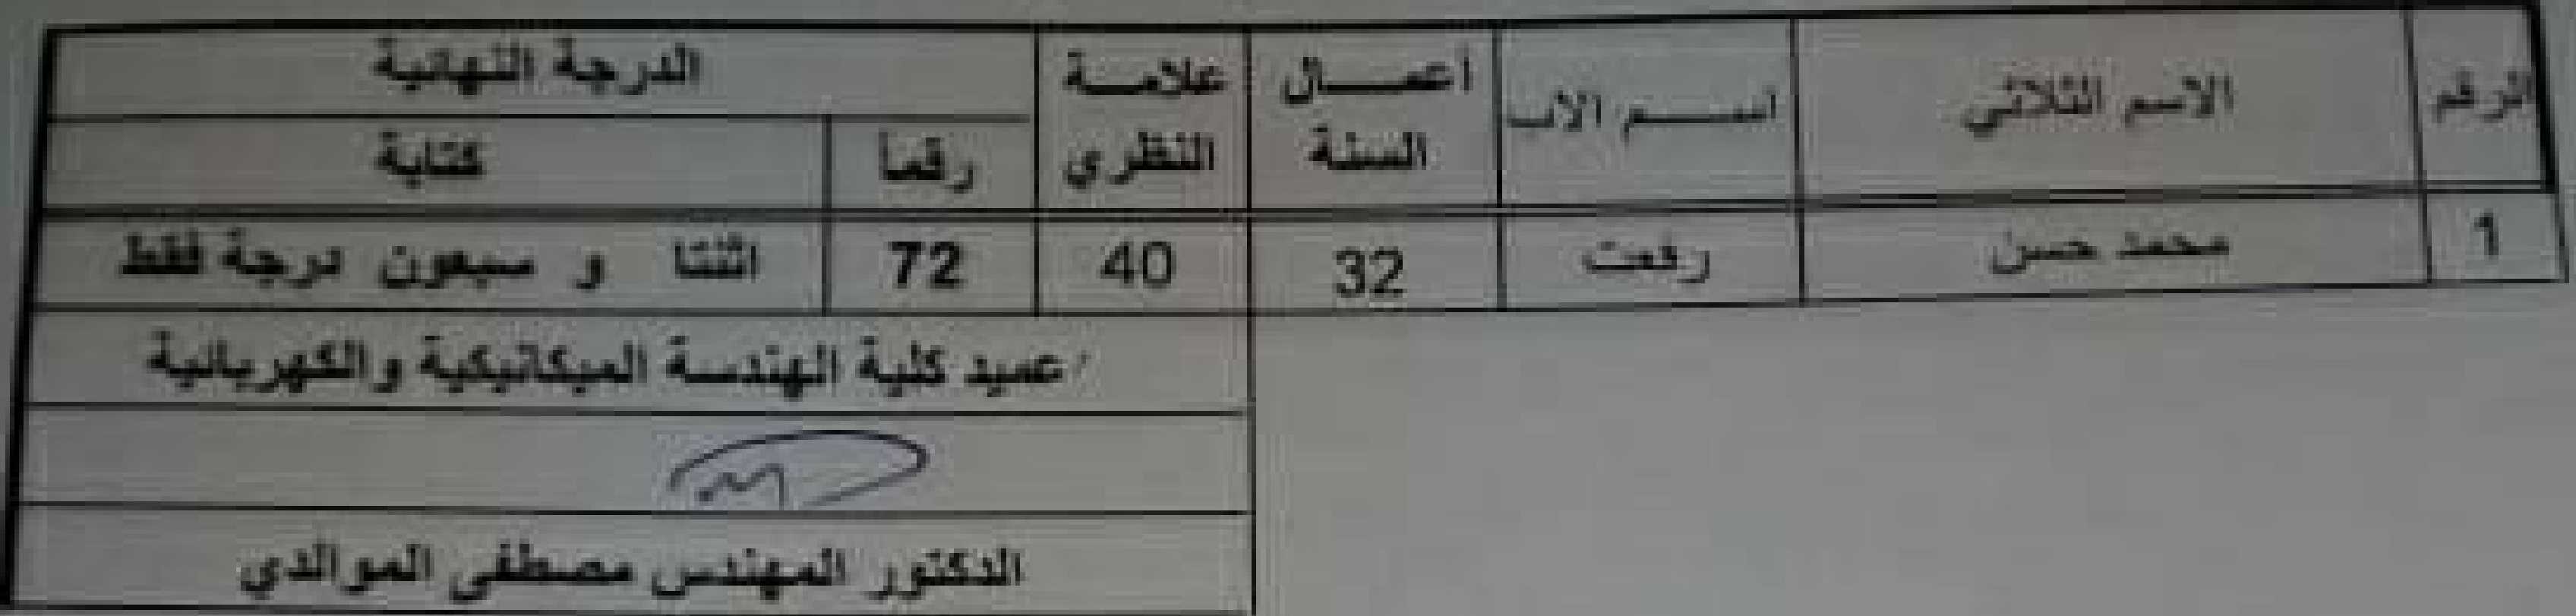 الرقم الاسم الثلاثي اسم الاب أعمال السنة علامة النظري الدرجة النهائية
رقماً كتابة
1 محمد حسن رفعت 32 40 72 اثنتا و سبعون درجة فقط
عميد كلية الهندسة الميكانيكية والكهربائية
الدكتور المهندس مصطفى الموالدي